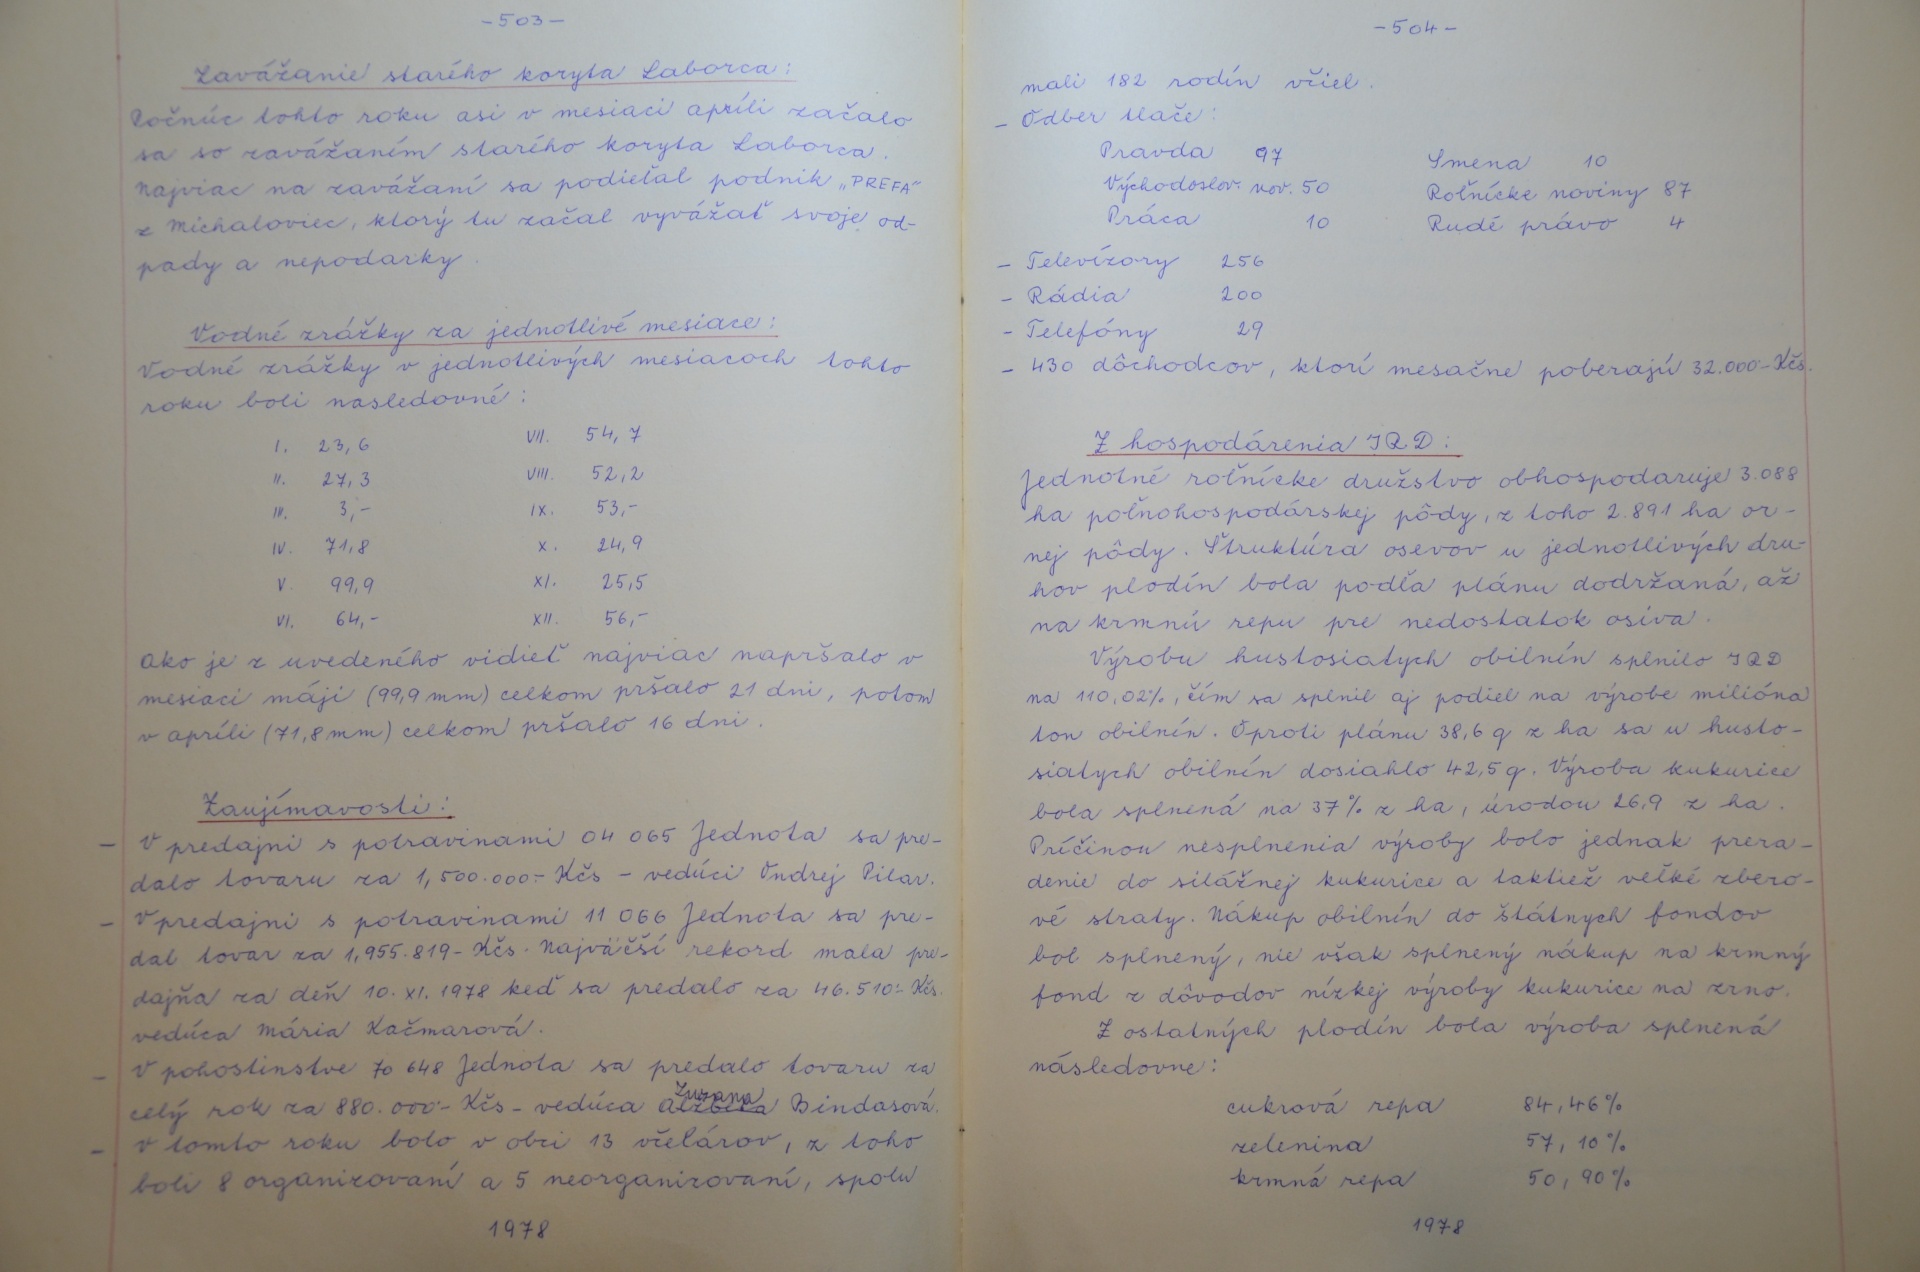 -503-
Zavážanie starého koryta Laborca:
Počnúc tohto roku asi v mesiaci apríli začalo
sa so zavážaním starého koryta Laborca.
Najviac na zavážaní sa podieľal podnik „PREFA"
z Michaloviec, ktorý tu začal vyvážať svoje od-
pady a nepodarky.
Vodné zrážky za jednotlivé mesiace:
Vodné zrážky v jednotlivých mesiacoch tohto
roku boli nasledovné:
I. 23,6 VII. 54,7
II. 27,3 VIII. 52,2
III. 3,- IX. 53,-
IV. 71,8 X. 24,9
V. 99,9 XI. 25,5
VI. 64,- XII. 56,-
Ako je z uvedeného vidieť najviac napršalo v
mesiaci máji (99,9 mm) celkom pršalo 21 dni, potom
v apríli (71,8 mm) celkom pršalo 16 dni.
Zaujímavosti:
- V predajni s potravinami 04 065 Jednota sa pre-
dalo tovaru za 1,500.000.- Kčs - vedúci Ondrej Pilar.
- V predajni s potravinami 11 066 Jednota sa pre-
dal tovar za 1,955.819- Kčs. Najväčší rekord mala pre-
dajňa za deň 10. XI. 1978 keď sa predalo za 46.510.- Kčs.
vedúca Mária Kačmarová.
- V pohostinstve 70 648 Jednota sa predalo tovaru za
Zuzana
celý rok za 880.000- Kčs - vedúca Alžbeta Bindasová.
- V tomto roku bolo v obci 13 včelárov, z toho
boli 8 organizovaní a 5 neorganizovaní, spolu
1978
-504-
mali 182 rodín včiel.
- Odber tlače:
Pravda 97 Smena 10
Východoslov. nov. 50 Roľnícke noviny 87
Práca 10 Rudé právo 4
- Televízory 256
- Rádia 200
- Telefóny 29
- 430 dôchodcov, ktorí mesačne poberajú 32.000- Kčs.
Z hospodárenia JRD:
Jednotné roľnícke družstvo obhospodaruje 3.088
ha poľnohospodárskej pôdy, z toho 2.891 ha or-
nej pôdy. Štruktúra osevov u jednotlivých dru-
hov plodín bola podľa plánu dodržaná, až
na krmnú repu pre nedostatok osiva.
Výrobu hustosiatych obilnín splnilo JRD
na 110,02%, čím sa splnil aj podiel na výrobe milióna
ton obilnín. Oproti plánu 38,6 q z ha sa u husto-
siatych obilnín dosiahlo 42,5 q. Výroba kukurice
bola splnená na 37% z ha, úrodou 26,9 z ha.
Príčinou nesplnenia výroby bolo jednak prera-
denie do silážnej kukurice a taktiež veľké zbero-
vé straty. Nákup obilnín do štátnych fondov
bol splnený, nie však splnený nákup na krmný
fond z dôvodov nízkej výroby kukurice na zrno.
Z ostatných plodín bola výroba splnená
následovne:
cukrová repa 84,46%
zelenina 57,10%
krmná repa 50,90%
1978